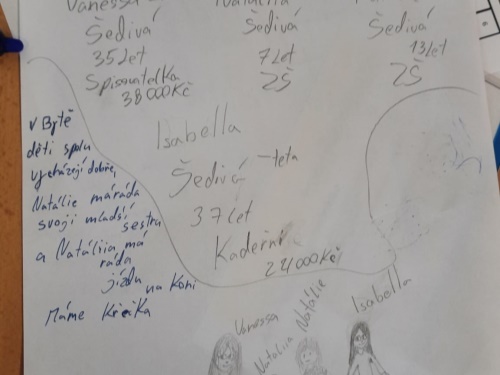 Vanessa
Šedivá
35 Let
Spisovatelka
38 000 Kč
Šedivá
7 Let
ZŠ
Šedivá
13 Let
ZŠ
Isabella
Šedivá -teta
37 Let
22 000 Kč
v Bytě
děti spolu
vycházejí dobře,
Natálie má ráda
svoji mladší
sestru
a Natáliia má
ráda
jízdu na koni
Máme Křečka
Vanessa
Natáliia
Natálie
Isabella